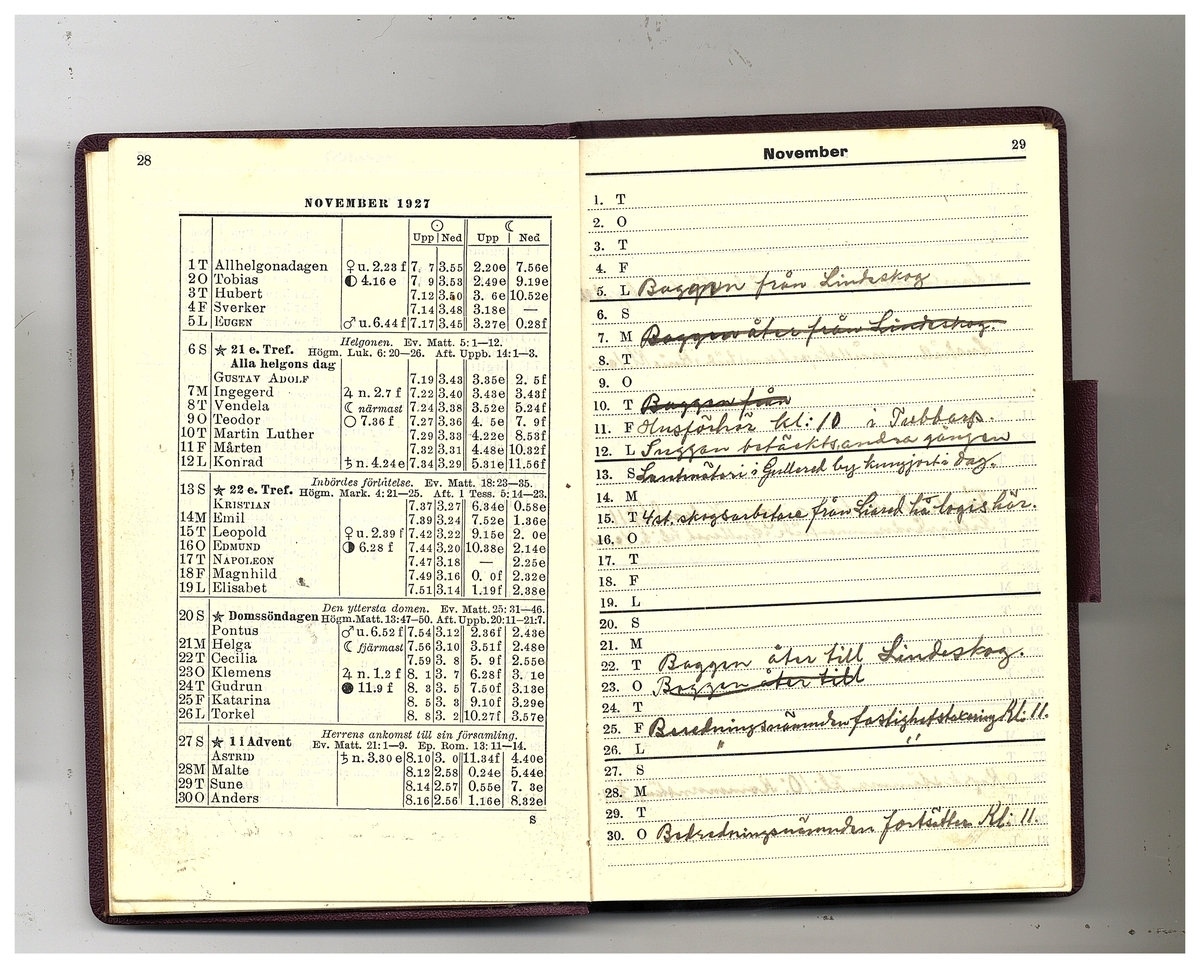 28
NOVEMBER 1927
☉ ☾
Upp Ned Upp Ned
1 T Allhelgonadagen ♀ u. 2.23 f 7. 7 3.55 2.20e 7.56e
2 O Tobias ◐ 4.16 e 7. 9 3.53 2.49e 9.19e
3 T Hubert 7.12 3.50 3. 6e 10.52e
4 F Sverker 7.14 3.48 3.18e —
5 L EUGEN ♂ u. 6.44 f 7.17 3.45 3.27e 0.28f
Helgonen. Ev. Matt. 5: 1—12.
6 S ★ 21 e. Tref. Högm. Luk. 6: 20—26. Aft. Uppb. 14: 1—3.
Alla helgons dag
GUSTAV ADOLF 7.19 3.43 3.35e 2. 5f
7 M Ingegerd ♃ n. 2.7 f 7.22 3.40 3.43e 3.43f
8 T Vendela ☾ närmast 7.24 3.38 3.52e 5.24f
9 O Teodor ○ 7.36 f 7.27 3.36 4. 5e 7. 9f
10 T Martin Luther 7.29 3.33 4.22e 8.53f
11 F Mårten 7.32 3.31 4.48e 10.32f
12 L Konrad ♄ n. 4.24 e 7.34 3.29 5.31e 11.56f
Inbördes förlåtelse. Ev. Matt. 18: 23—35.
13 S ★ 22 e. Tref. Högm. Mark. 4: 21—25. Aft. 1 Tess. 5: 14—23.
KRISTIAN 7.37 3.27 6.34e 0.58e
14 M Emil 7.39 3.24 7.52e 1.36e
15 T Leopold ♀ u. 2.39 f 7.42 3.22 9.15e 2. 0e
16 O EDMUND ◑ 6.28 f 7.44 3.20 10.38e 2.14e
17 T NAPOLEON 7.47 3.18 — 2.25e
18 F Magnhild 7.49 3.16 0. 0f 2.32e
19 L Elisabet 7.51 3.14 1.19f 2.38e
Den yttersta domen. Ev. Matt. 25: 31—46.
20 S ★ Domssöndagen Högm. Matt. 13: 47—50. Aft. Uppb. 20: 11—21: 7.
Pontus ♂ u. 6.52 f 7.54 3.12 2.36f 2.43e
21 M Helga ☾ fjärmast 7.56 3.10 3.51f 2.48e
22 T Cecilia 7.59 3. 8 5. 9f 2.55e
23 O Klemens ♃ n. 1.2 f 8. 1 3. 7 6.28f 3. 1e
24 T Gudrun ● 11.9 f 8. 3 3. 5 7.50f 3.13e
25 F Katarina 8. 5 3. 3 9.10f 3.29e
26 L Torkel 8. 8 3. 2 10.27f 3.57e
Herrens ankomst till sin församling.
27 S ★ 1 i Advent Ev. Matt. 21: 1—9. Ep. Rom. 13: 11—14.
ASTRID ♄ n. 3.30 e 8.10 3. 0 11.34f 4.40e
28 M Malte 8.12 2.58 0.24e 5.44e
29 T Sune 8.14 2.57 0.55e 7. 3e
30 O Anders 8.16 2.56 1.16e 8.32e
S
November 29
1. T
2. O
3. T
4. F
5. L Baggen från Lindeskog
6. S
7. M Baggen åter från Lindeskog.
8. T
9. O
10. T Baggen från
11. F Husförhör kl: 10 i Tubbarp.
12. L Suggan betäckts andra gången
13. S Lantmäteri i Gullered by kungjort i dag.
14. M
15. T 4 st. skogsarbetare från Liared ha logis här.
16. O
17. T
18. F
19. L
20. S
21. M
22. T Baggen åter till Lindeskog.
23. O Baggen åter till
24. T
25. F Beredningsnämnden fastighetstaxering Kl: 11.
26. L " "
27. S
28. M
29. T
30. O Beredningsnämnden fortsätter Kl: 11.